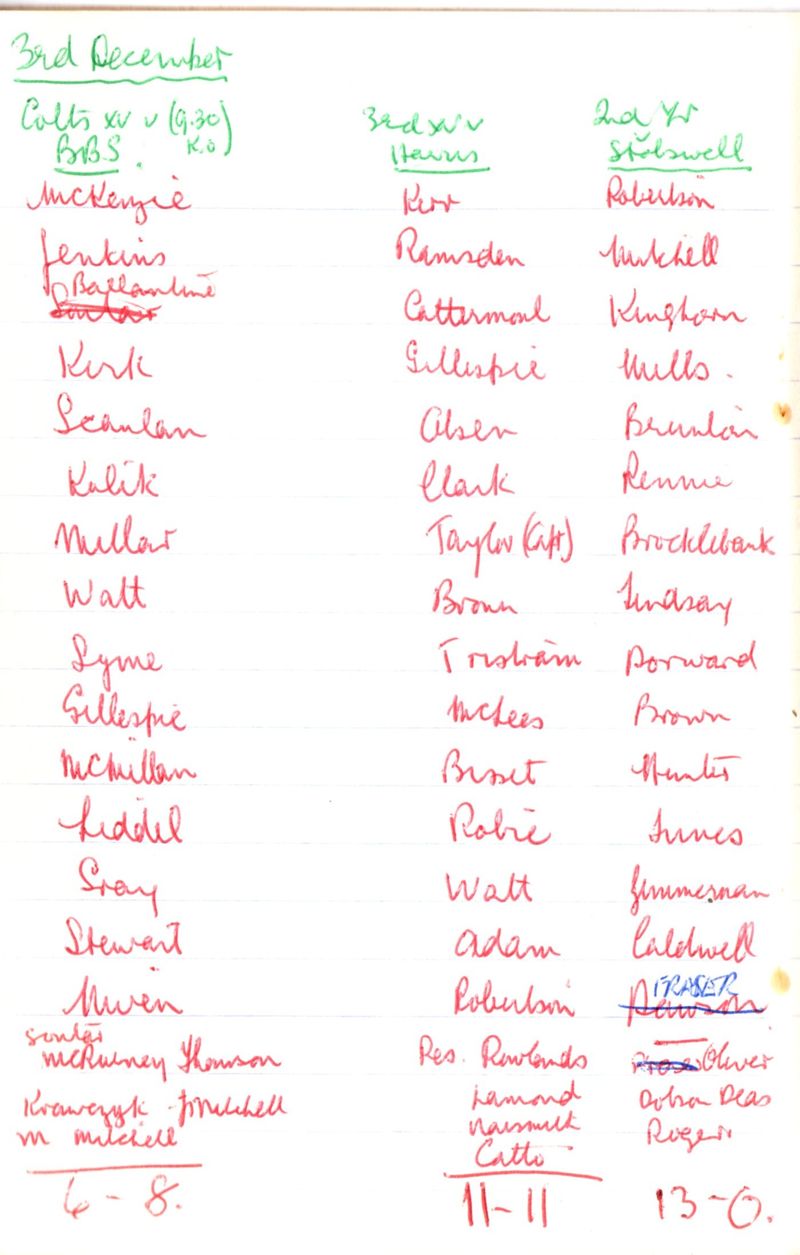 3rd December
Colts XV v (9.30
K.O)
BBS.
McKenzie
Jenkins
Ballantine
Kirk
Scanlan
Kulik
Millar
Watt
Syme
Gillespie
McMillan
Liddel
Gray
Stewart
Niven
Soutar
Thomson
Krawczyk J Mitchell
M Mitchell
6 - 8.
3rd XV v
Harris
Kerr
Ramsden
Cattermoul
Gillespie
Olsen
Clark
Taylor (Capt)
Brown
Tristram
McLees
Bisset
Robie
Watt
Adam
Robertson
Res. Rowlands
Lamond
Naismith
Catto
11 - 11
2nd Yr
Robertson
Mitchell
Kinghorn
Mills.
Brunton
Rennie
Brocklebank
Lindsay
Dorward
Brown
Hunter
Innes
Zimmerman
Caldwell
FRASER
Dawson
Oliver
Dobson Deas
Roger
13 - 0.